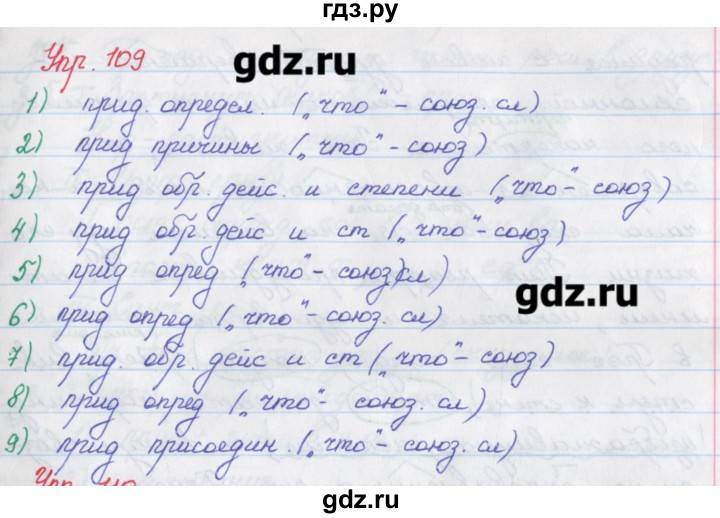 гдз.ру
Упр. 109
gdz.ru
1) прид. определ. („что“ - союз. сл)
2) прид причины („что“ - союз)
3) прид обр. дейс. и степени („что“ - союз)
4) прид обр. дейс и ст („что“ - союз)
5) прид опред („что“ - союз сл)
gdz.ru
6) прид опред („что“ - союз. сл)
7) прид. обр. дейс и ст („что“ - союз)
8) прид опред („что“ - союз. сл)
9) прид присоедин. („что“ - союз. сл)
Упр. 110
gdz.ru